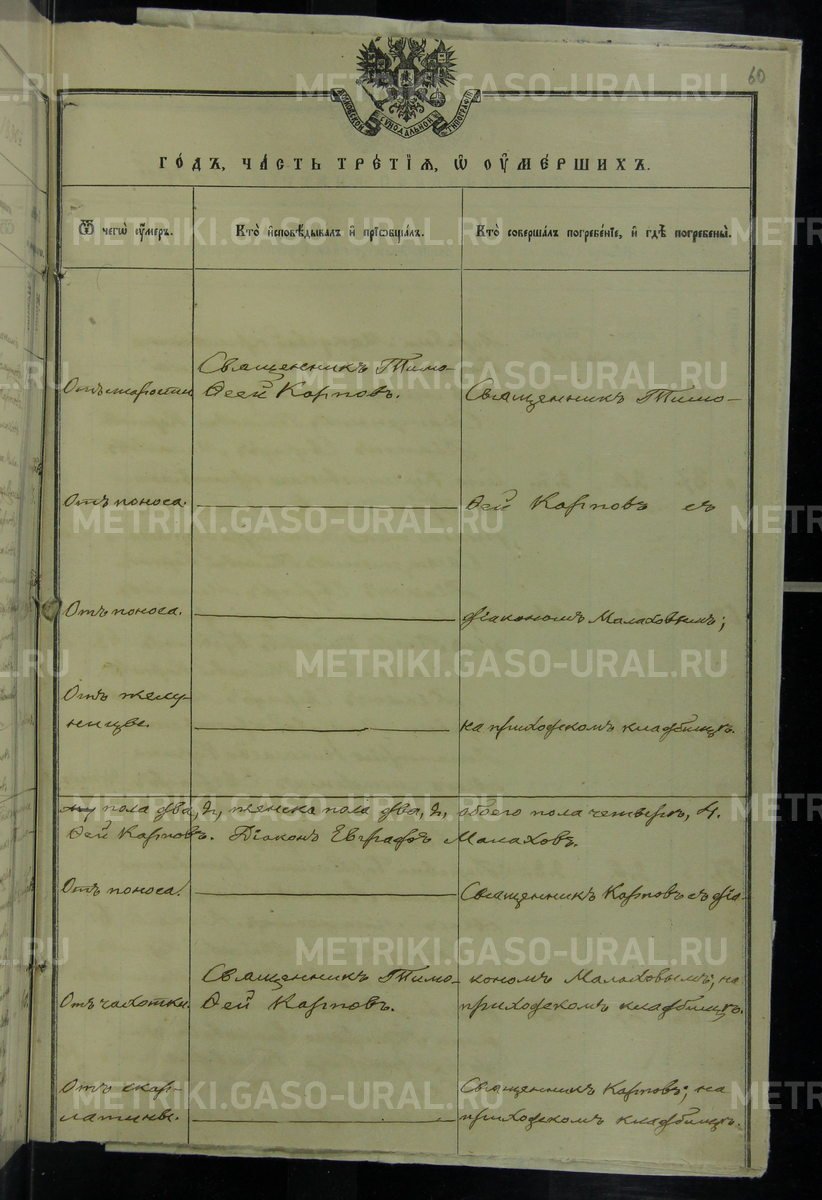 60
МОСКОВСКОЙ СѴНОДАЛЬНОЙ ТИПОГРАФІИ
ГО́ДЪ, ЧА́СТЬ ТРЕ́ТІѦ, Ѡ҆ ОУ҆МЕ́РШИХЪ.
Ѿ чегѡ̀ оу҆́меръ.
Кто̀ и҆сповѣ́дывалъ и҆ прїѡбща́лъ.
Кто̀ соверша́лъ погребе́нїе, и҆ гдѣ̀ погребены̀.
Отъ старости
Священникъ Тимо-
ѳеей Карповъ.
Священникъ Тимо-
Отъ поноса.
ѳей Карповъ съ
Отъ поноса.
діакономъ Малаховымъ;
Отъ
на приходскомъ кладбищѣ.
пола два, 2, женска пола два, 2, обоего пола четверо, 4.
ѳей Карповъ. Діаконъ Евграфъ Малаховъ.
Отъ поноса.
Священникъ Карповъ съ діа-
Отъ чахотки.
Священникъ Тимо-
ѳей Карповъ.
кономъ Малаховымъ; на
приходскомъ кладбищѣ.
Отъ скар-
латины.
Священникъ Карповъ; на
приходскомъ кладбищѣ.
METRIKI.GASO-URAL.RU